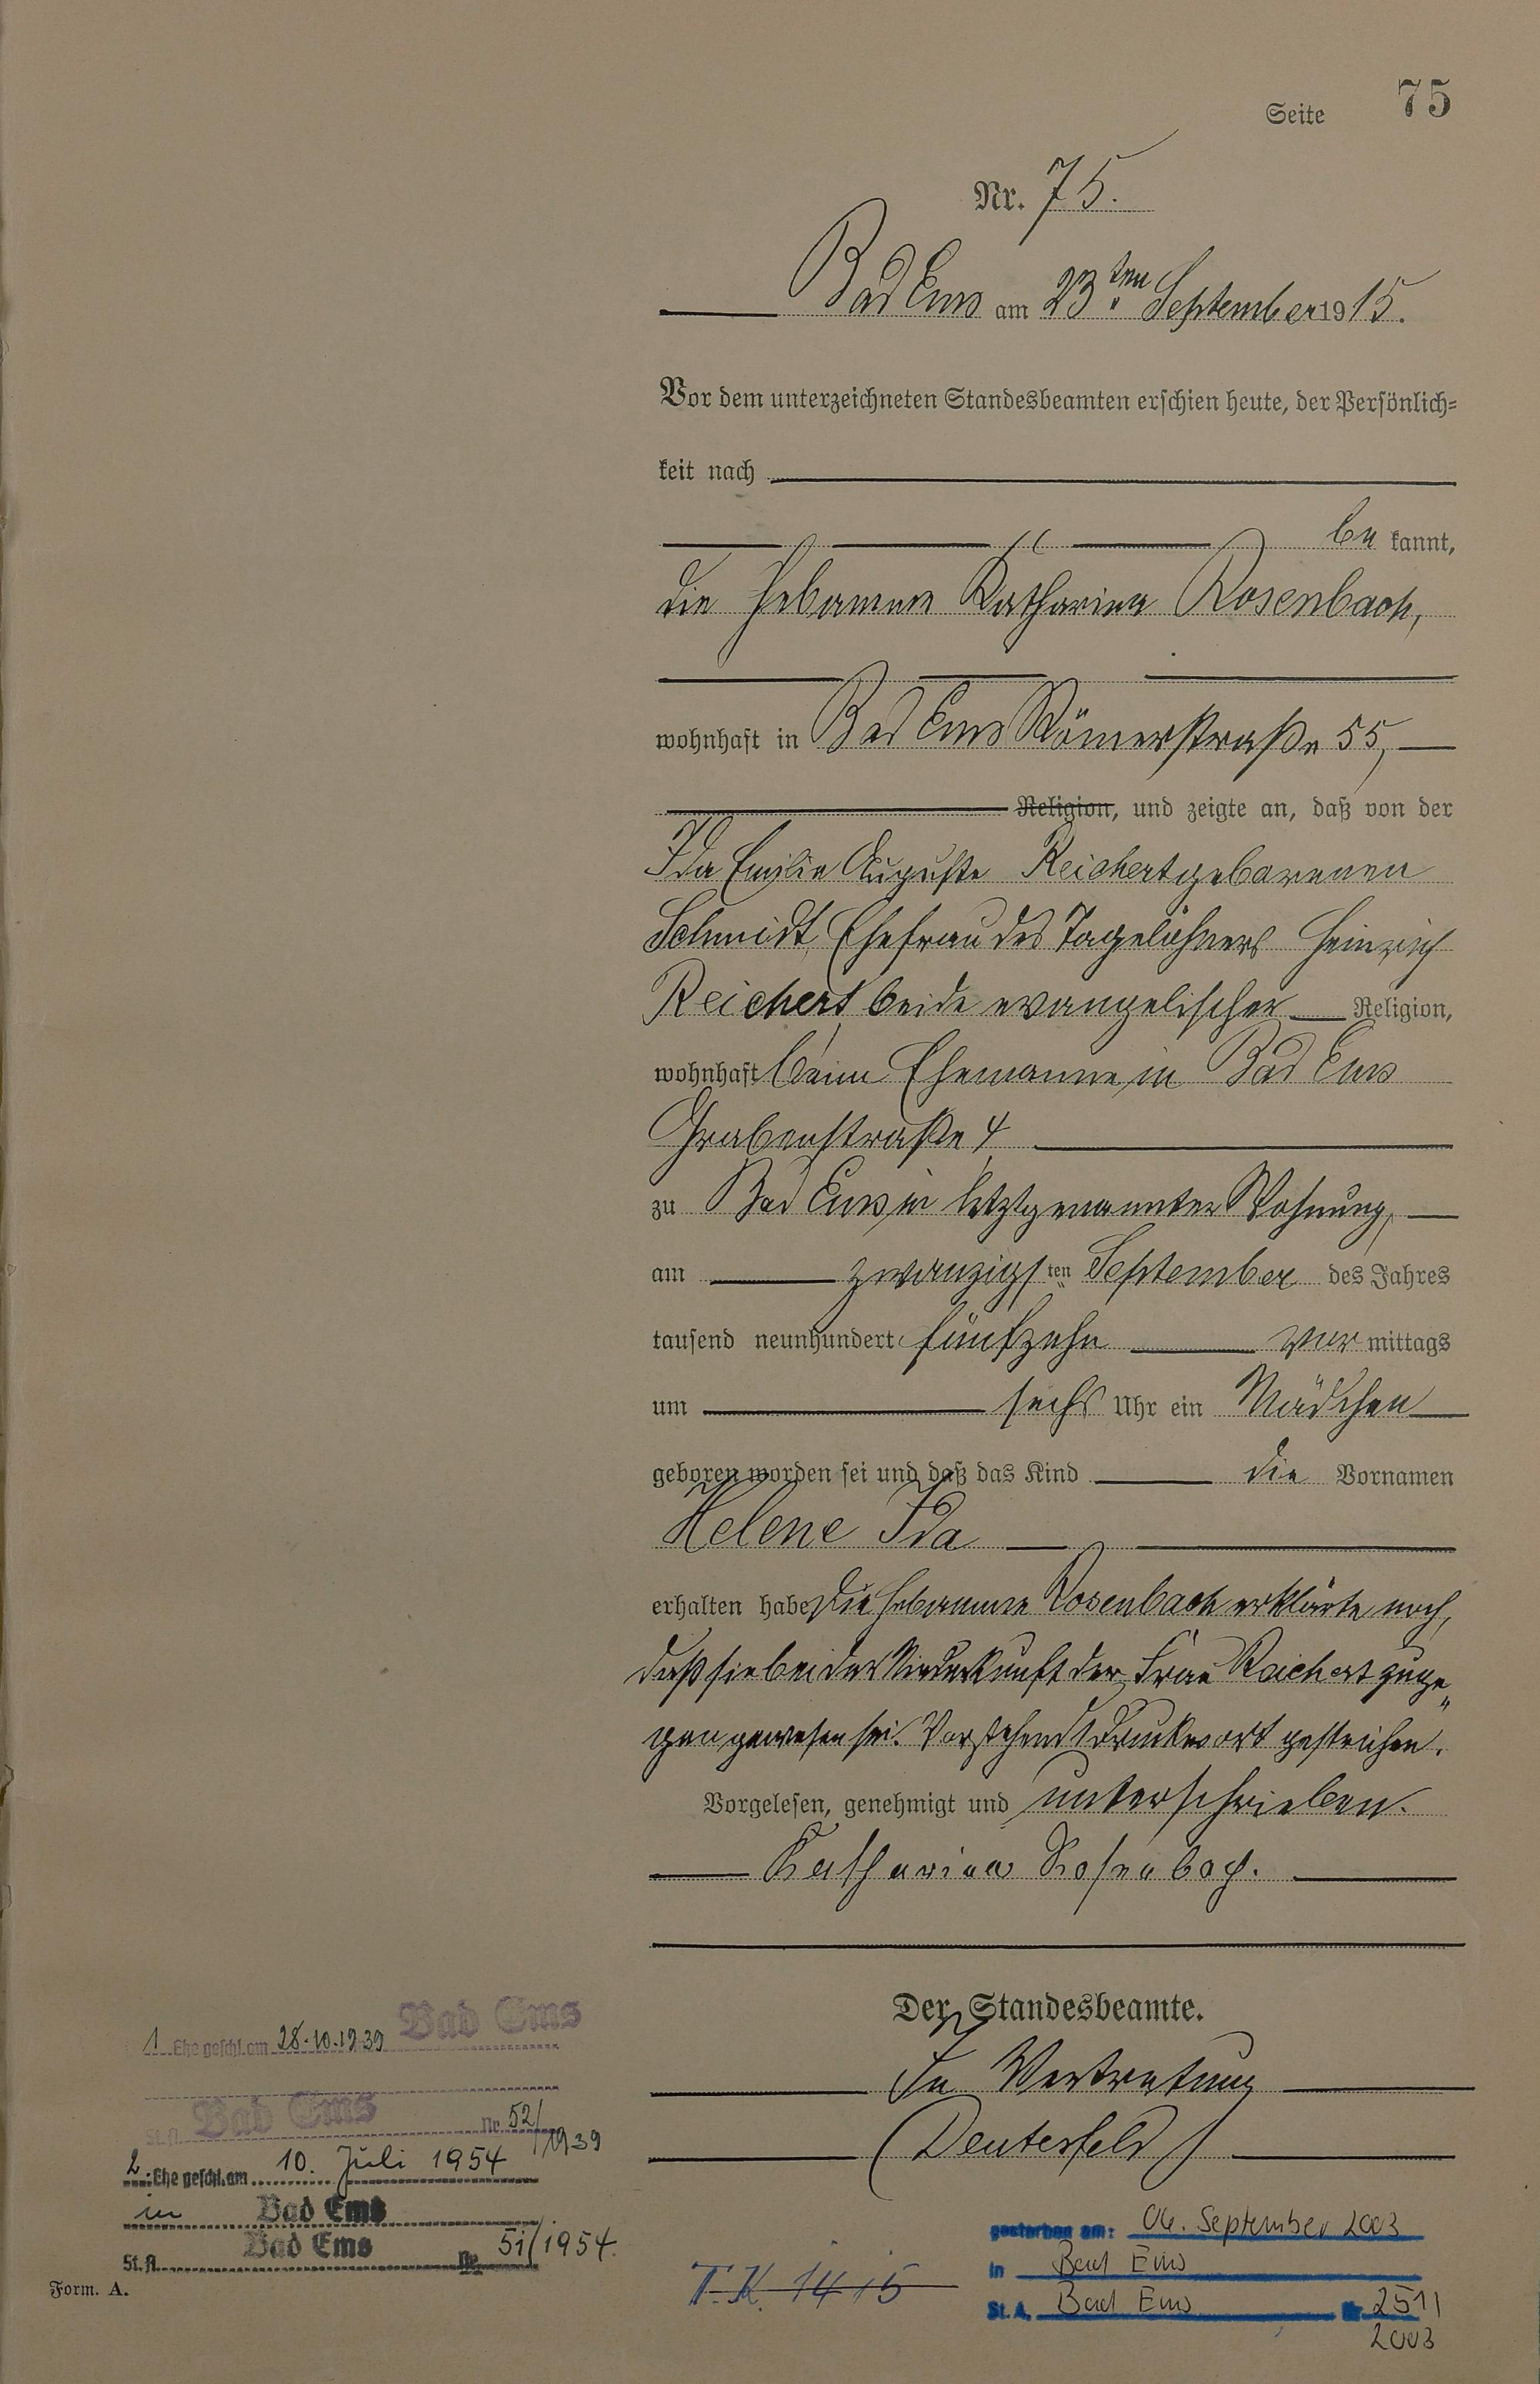 Seite 75
Nr. 75.
Bad Ems am 23ten September 1915.
Vor dem unterzeichneten Standesbeamten erschien heute, der Persönlich-
keit nach
be kannt,
die Hebamme Katharina Rosenbach,
wohnhaft in Bad Ems Römerstraße 55,
Religion, und zeigte an, daß von der
Ida Emilie Auguste Reichert geborenen
Schmidt, Ehefrau des Tagelöhners Heinrich
Reichert beide evangelischer Religion,
wohnhaft beim Ehemanne in Bad Ems
Grabenstraße 4
zu Bad Ems in letztgenannter Wohnung,
am zwanzigsten September des Jahres
tausend neunhundert fünfzehn vor mittags
um sechs Uhr ein Mädchen
geboren worden sei und daß das Kind die Vornamen
Helene Ida
erhalten habe. Die Hebamme Rosenbach erklärte noch,
daß sie bei der Niederkunft der Frau Reichert zuge-
gen gewesen sei. Vorstehend 1 Druckwort gestrichen.
Vorgelesen, genehmigt und unterschrieben.
Katharina Rosenbach.
Der Standesbeamte.
In Vertretung
(Deutesfeld)
1 Ehe geschl. am 28.10.1939 Bad Ems
St. A. Bad Ems Nr. 52/1939
2. Ehe geschl. am 10. Juli 1954
in Bad Ems
St. A. Bad Ems Nr. 51/1954.
Form. A.
T. K. 14 15
gestorben am: 06. September 2003
in Bad Ems
St. A. Bad Ems Nr. 251/
2003